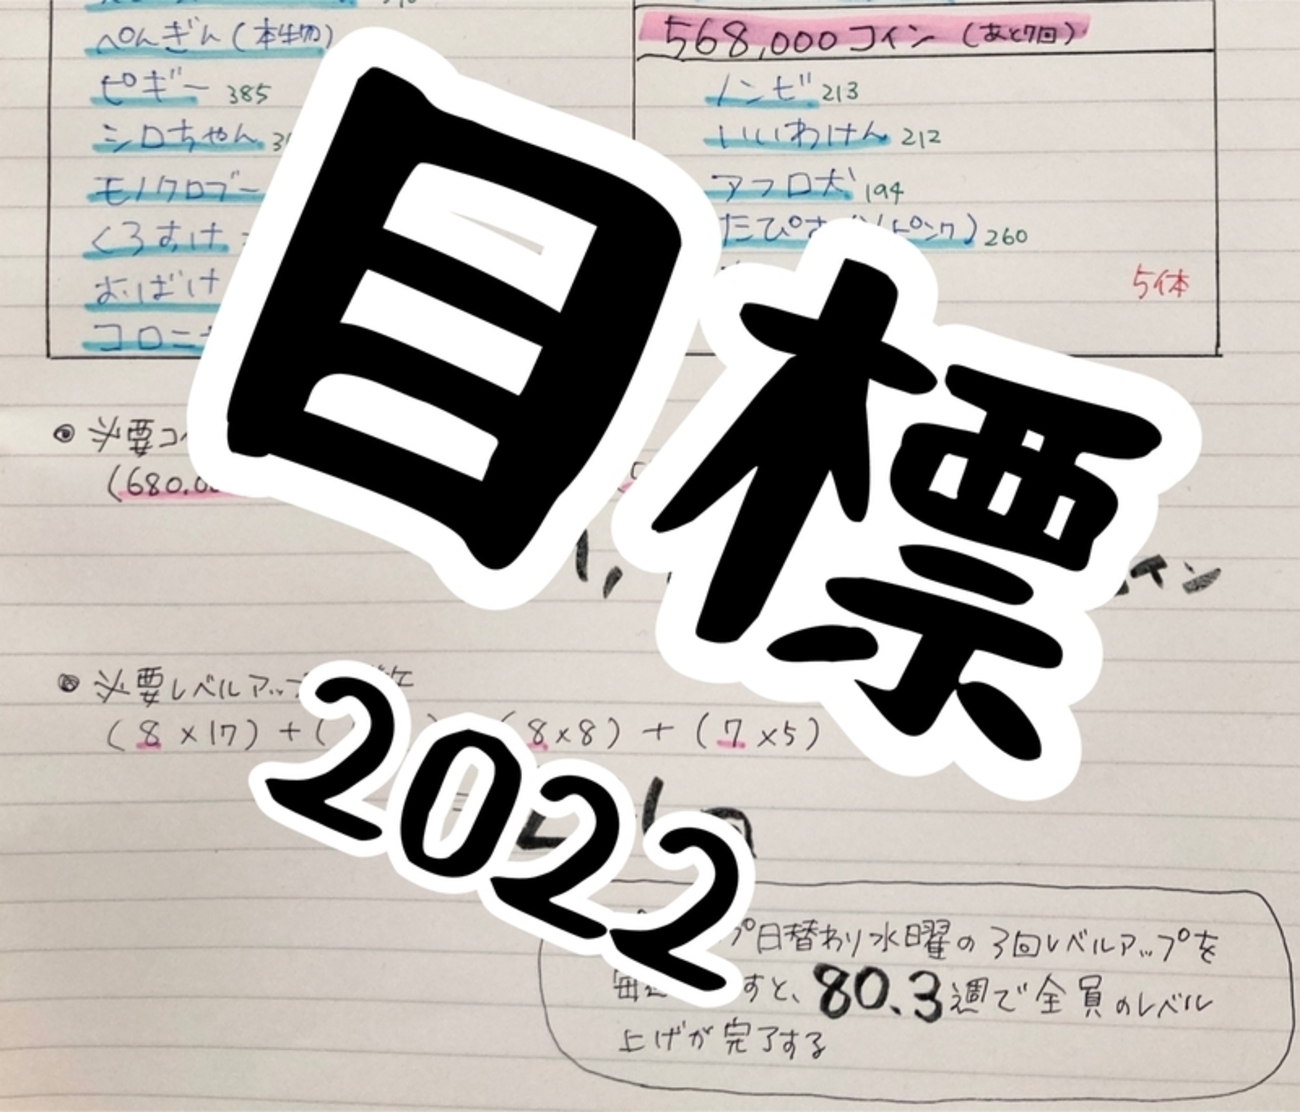 ぺんぎん(本生物)
ピギー 385
シロちゃん
モノクロブー
くろすけ
おばけ
コロニ
568,000コイン (あと7回)
ノンビ 213
いいわけん 212
アフロ犬 194
たぴ ピンク) 260
5体
◎ 必要コ
(680,0
イン
◎ 必要レベルアップ
(8×17)+( (8×8)+(7×5)
プ日替わり水曜の3回レベルアップを
すと、80.3週で全員のレベル
上げが完了する
目標
2022